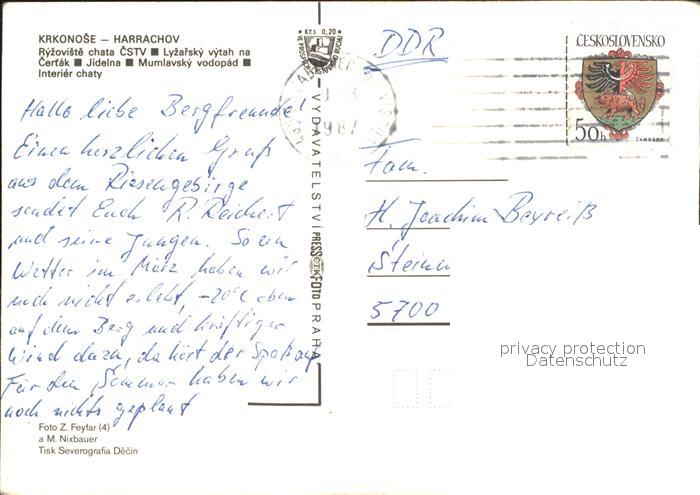 KRKONOŠE — HARRACHOV
Rýžoviště chata ČSTV ■ Lyžařský výtah na
Čerťák ■ Jídelna ■ Mumlavský vodopád ■
Interiér chaty
Hallo liebe Bergfreunde!
Einen herzlichen Gruß
aus dem Riesengebirge
sendet Euch R. Reichert
und seine Jungen. So ein
Wetter im März haben wir
noch nicht erlebt, -20°C oben
auf dem Berg und kräftiger
Wind dazu, da hört der Spaß auf
Für den Sommer haben wir
noch nichts geplant
Foto Z. Feyfar (4)
a M. Nixbauer
Tisk Severografia Děčín
Kčs 0,20
VYDAVATELSTVÍ PRESSFOTO PRAHA
ČTK
1987
DDR
ČESKOSLOVENSKO
50h
ŽAMBERK
Fam.
H. Joachim Bexreiß
5700
privacy protection
Datenschutz